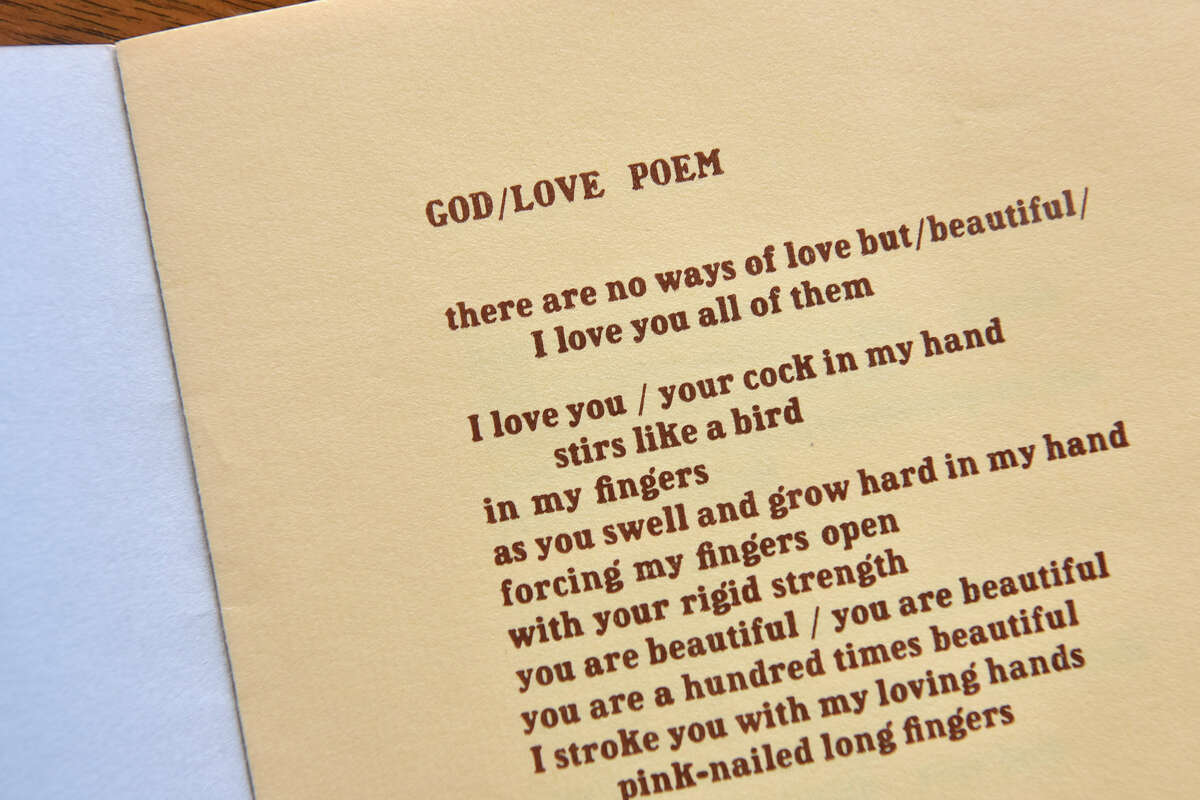 GOD/LOVE POEM
there are no ways of love but/beautiful/
I love you all of them
I love you / your cock in my hand
stirs like a bird
in my fingers
as you swell and grow hard in my hand
forcing my fingers open
with your rigid strength
you are beautiful / you are beautiful
you are a hundred times beautiful
I stroke you with my loving hands
pink-nailed long fingers